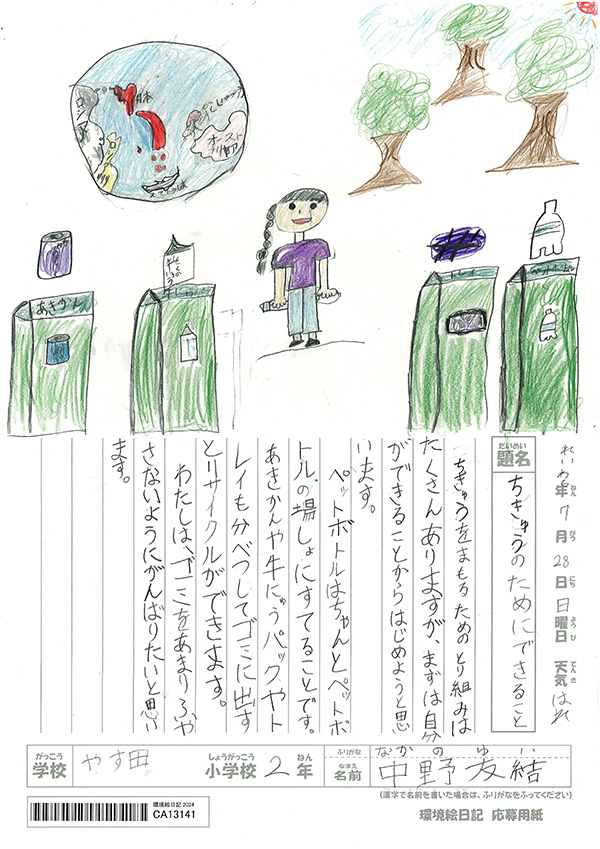 日本
ロシア
オーストラリア
あきかん
トレイ
ペットボトル
れいわ 年 7月 28日 日曜日 天気 はれ
ねん がつ にち ようび てんき
だいめい
題名
ちきゅうのためにできること
ちきゅうをまもるためのとり組みは
たくさんありますが、まずは自分
ができることからはじめようと思
います。
ペットボトルはちゃんとペットボ
トルの場しょにすてることです。
あきかんや牛にゅうパックやト
レイも分べつしてゴミに出す
とリサイクルができます。
わたしは、ゴミをあまりふや
さないようにがんばりたいと思い
ます。
がっこう
学校
やす田
しょうがっこう ねん
小学校 2年
ふりがな
なかの ゆい
なまえ
名前
中野友結
(漢字で名前を書いた場合は、ふりがなをふってください)
環境絵日記 2024
CA13141
環境絵日記 応募用紙